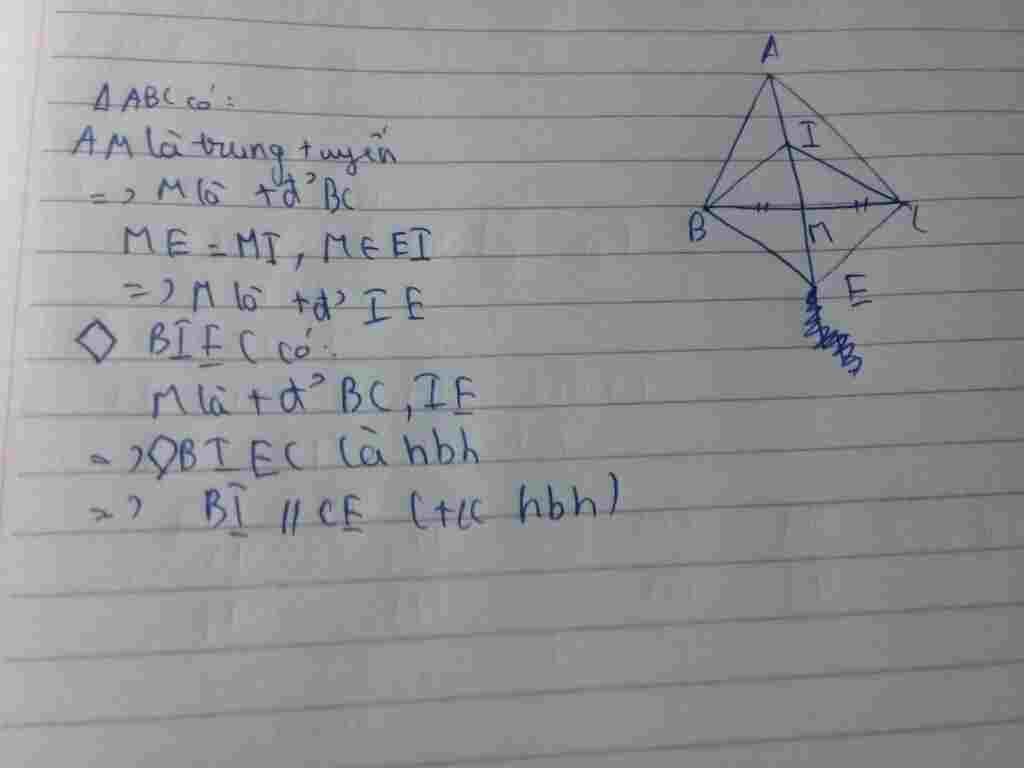 Δ ABC có:
AM là trung tuyến
=> M là tđ' BC
ME = MI, M ∈ EI
=> M là tđ' IE
◇ BIEC có:
M là tđ' BC, IE
=> ◇BIEC là hbh
=> BI // CE (t/c hbh)
A
I
B
M
C
E